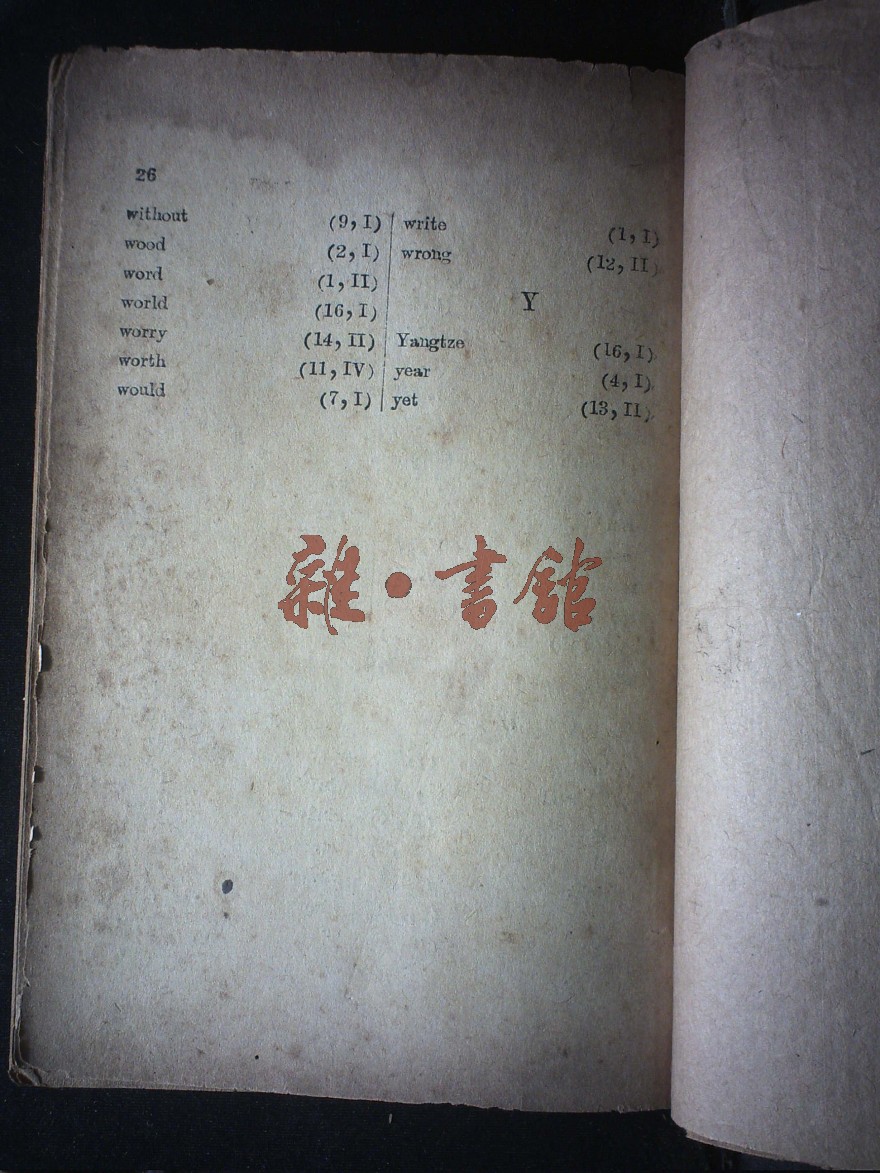 26
without (9, I)
wood (2, I)
word (1, II)
world (16, I)
worry (14, II)
worth (11, IV)
would (7, I)
write (1, I)
wrong (12, II)
Y
Yangtze (16, I)
year (4, I)
yet (13, II)
雜·書館